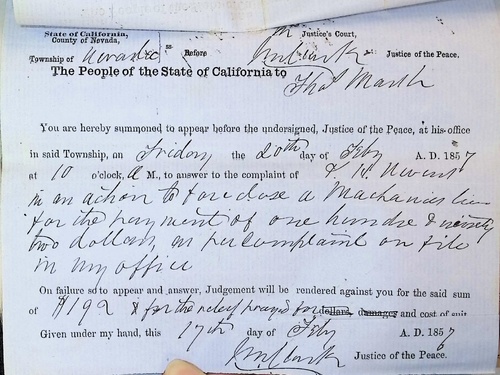 State of California,
County of Nevada,
Township of Nevada
ss
Before
In Justice's Court,
Wm Clark Justice of the Peace.
The People of the State of California to
Thos Marsh
You are hereby summoned to appear before the undersigned, Justice of the Peace, at his office
in said Township, on Friday the 20th day of Feby A. D. 1857
at 10 o'clock, A M., to answer to the complaint of
in an action to foreclose a Machanics lien
for the payment of one hundre & ninety
two dollars, as per complaint on file
in my office
On failure so to appear and answer, Judgement will be rendered against you for the said sum
of $192 & for the relief prayed for dollars, damages and cost of suit
Given under my hand, this 17th day of Feby A. D. 1857
Wm Clark Justice of the Peace.